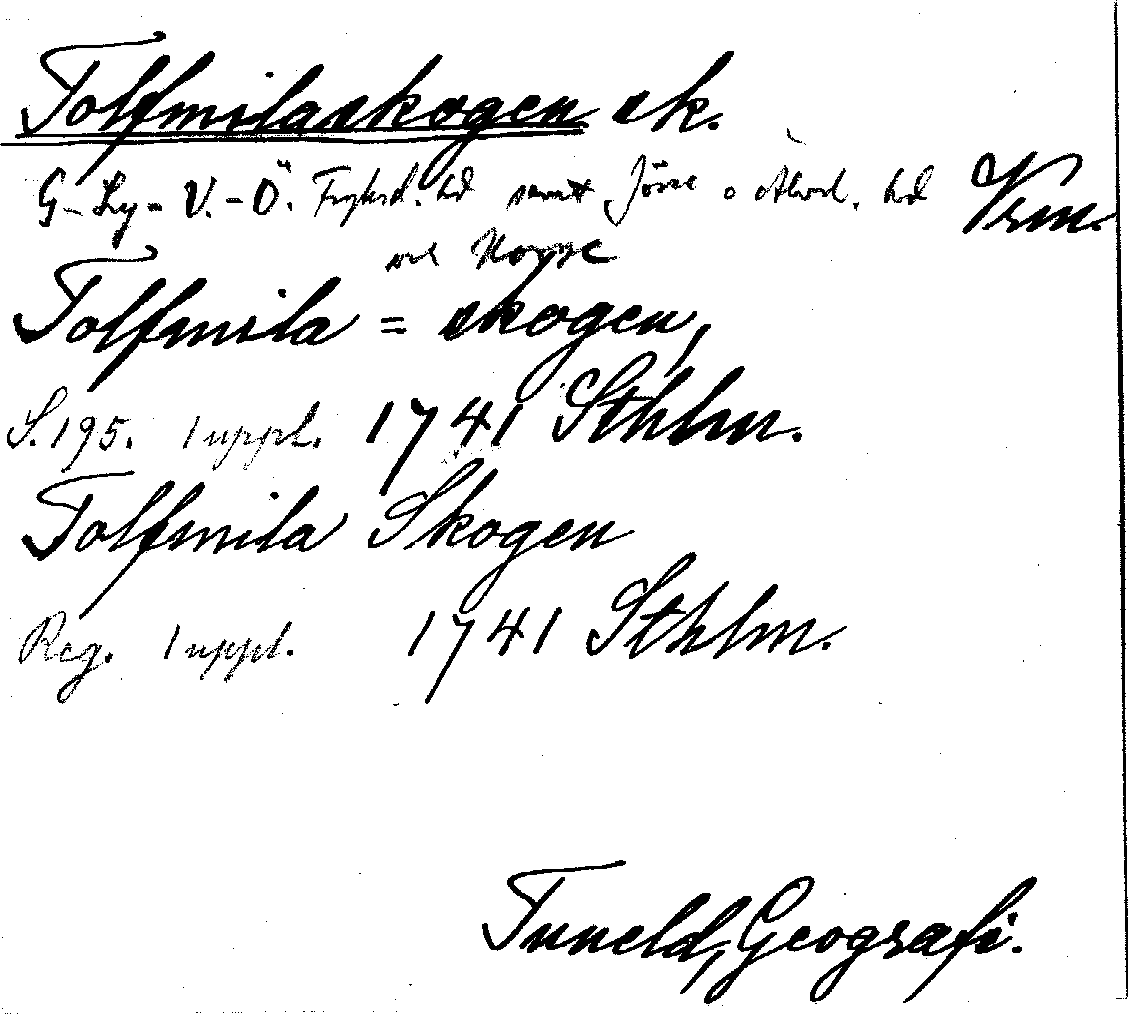 Tolfmilaskogen sk.
G-Ly-V.-Ö. Fryksd. hd samt Jösse o Älvd. hd Vrm.
och Norge
Tolfmila = skogen,
S. 195. 1 uppl. 1741 Sthlm.
Tolfmila Skogen
Reg. 1 uppl. 1741 Sthlm.
Tuneld, Geografi.